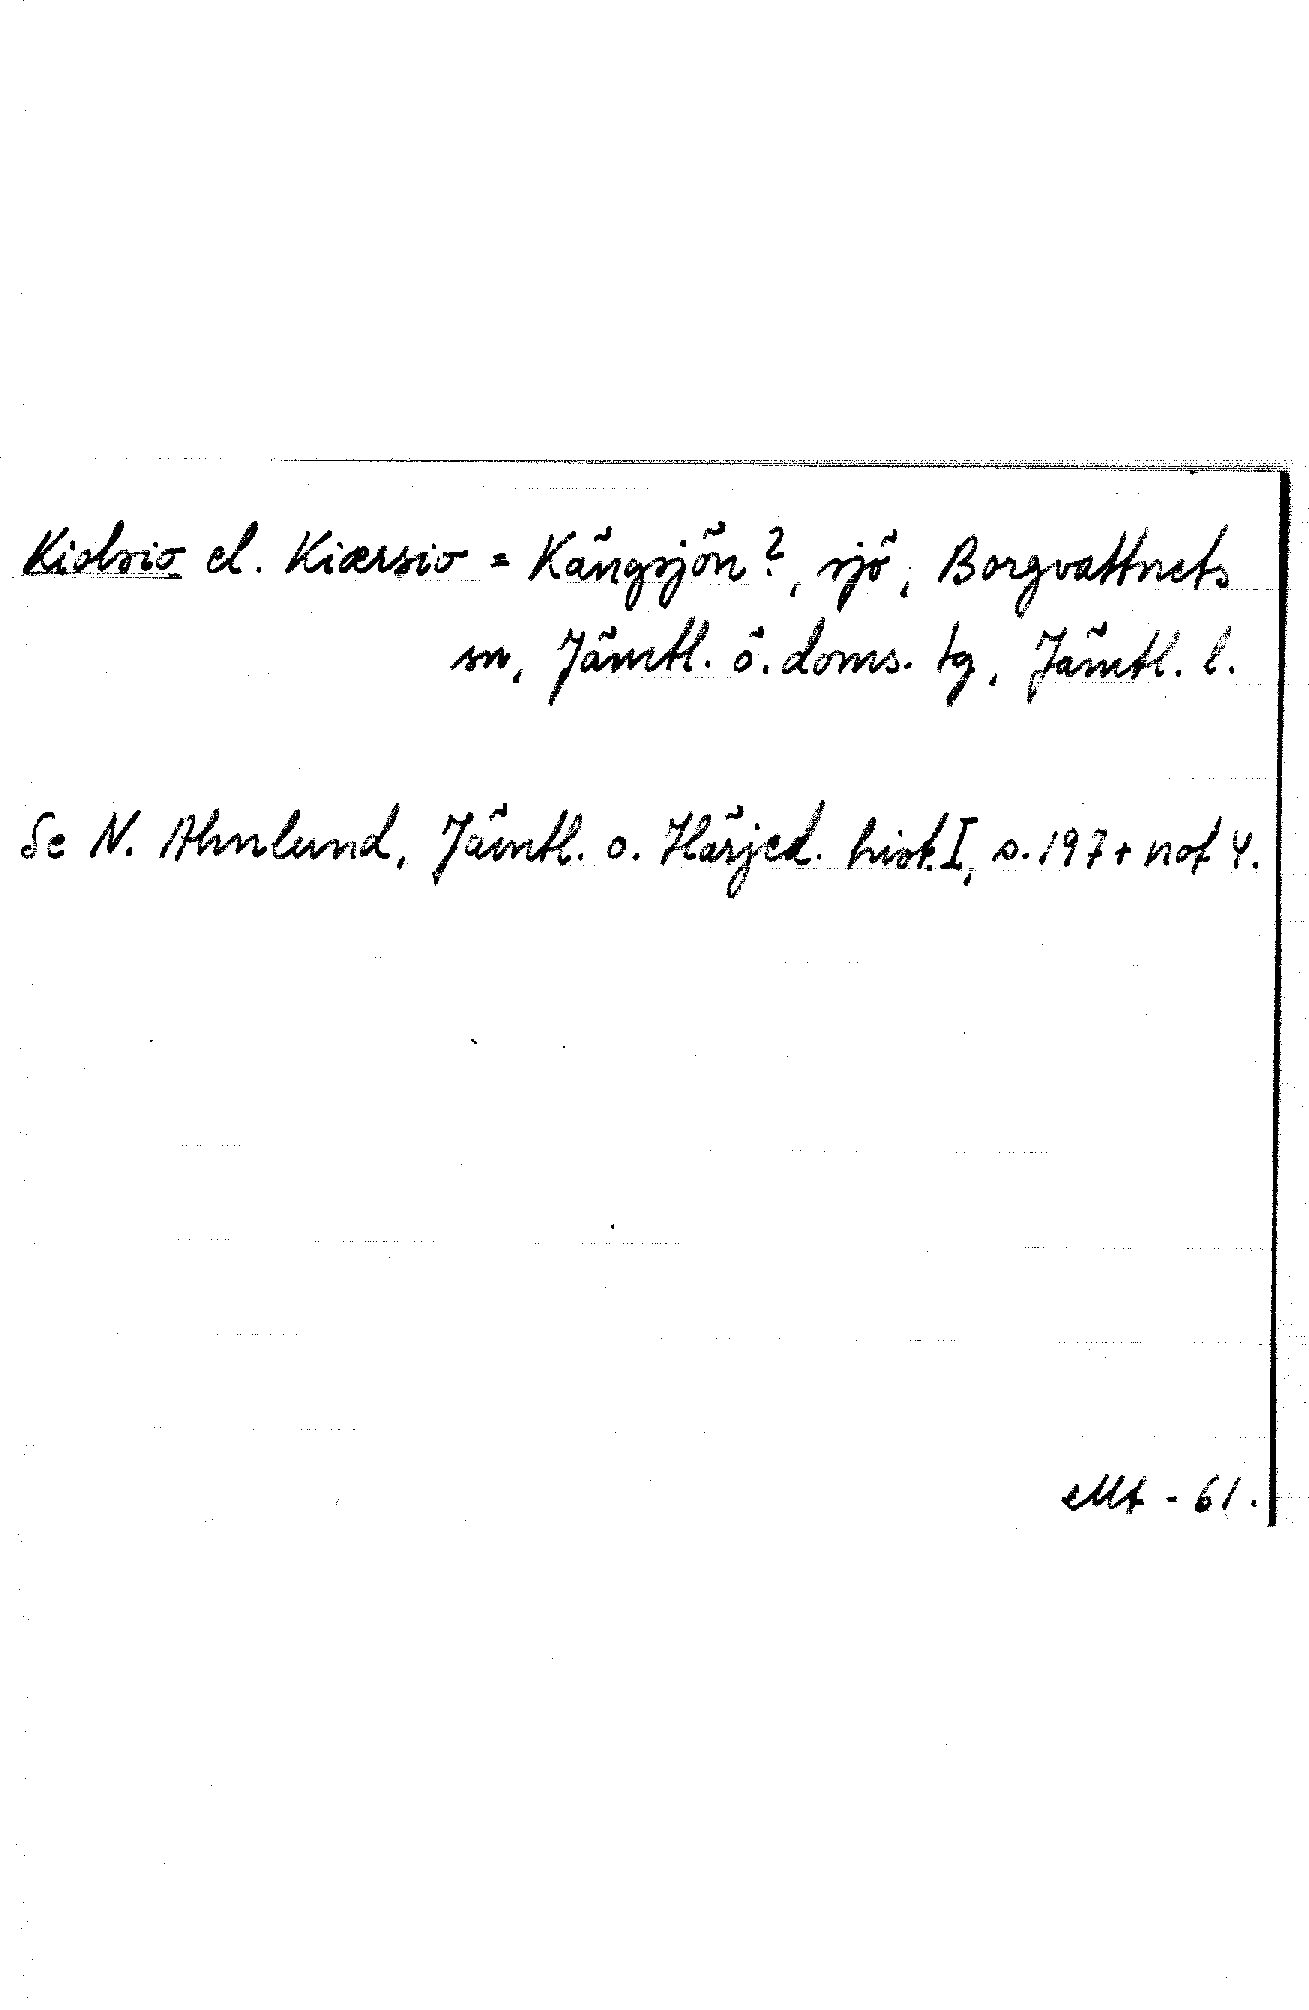 Kiolsio el. Kiærsio = Kängsjön?, sjö, Borgvattnets
sn, Jämtl. ö. doms. tg, Jämtl. l.
Se N. Ahnlund, Jämtl. o. Härjed. hist. I, s. 197 + not 4.
eMt - 61.